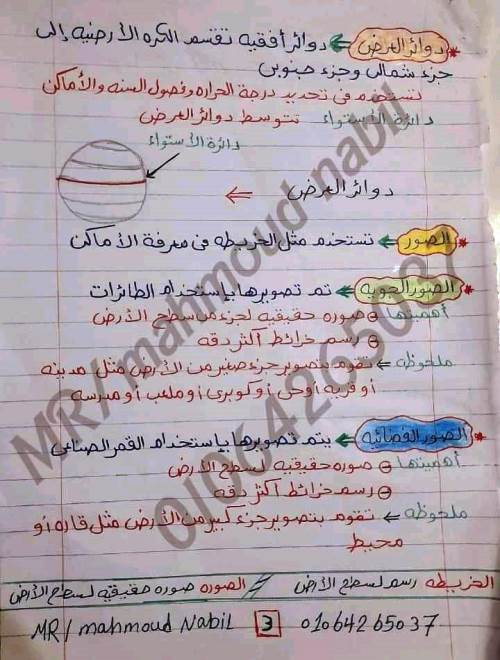 * دوائر العرض ← دوائر أفقيه تقسم الكره الأرضيه إلى
جزء شمالى وجزء جنوبى
تستخدم فى تحديد درجة الحراره وفصول السنه والأماكن
دائرة الأستواء تتوسط دوائر العرض
دائرة الأستواء
دوائر العرض ←
* الصور ← تستخدم مثل الخريطه فى معرفة الأماكن
* الصور الجويه ← تم تصويرها بإستخدام الطائرات
أهميتها صوره حقيقيه لجزء من سطح الأرض
رسم خرائط أكثر دقه
ملحوظه ← تقوم بتصوير جزء صغير من الأرض مثل مدينه
أو قريه أو حى أو كوبرى أو ملعب أو مدرسه
* الصور الفضائيه ← يتم تصويرها بإستخدام القمر الصناعى
أهميتها صوره حقيقيه لسطح الأرض
رسم خرائط أكثر دقه
ملحوظه ← تقوم بتصوير جزء كبير من الأرض مثل قاره أو
محيط
الخريطه رسم لسطح الأرض // الصوره صوره حقيقيه لسطح الأرض
MR/mahmoud Nabil 3 01064265037
MR/mahmoud nabil
01064265037